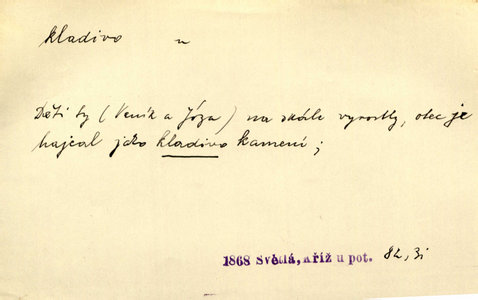 kladivo n
Děti ty (Veník a Józa) na skále vyrostly, otec je
hájcal jako kladivo kamení;
1868 Světlá, Kříž u pot. 82, 3i